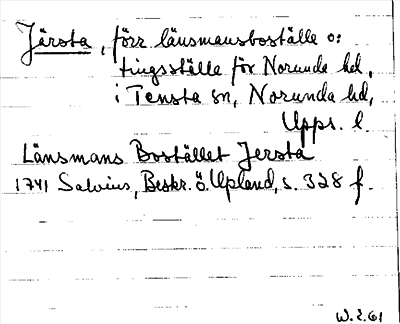 Järsta, förr länsmansboställe o:
tingsställe för Norunda hd,
i Tensta sn, Norunda hd,
Upps. l.
Länsmans Bostället Jersta
1741 Salvius, Beskr. ö. Upland, s. 328 f.
W. 2. 61